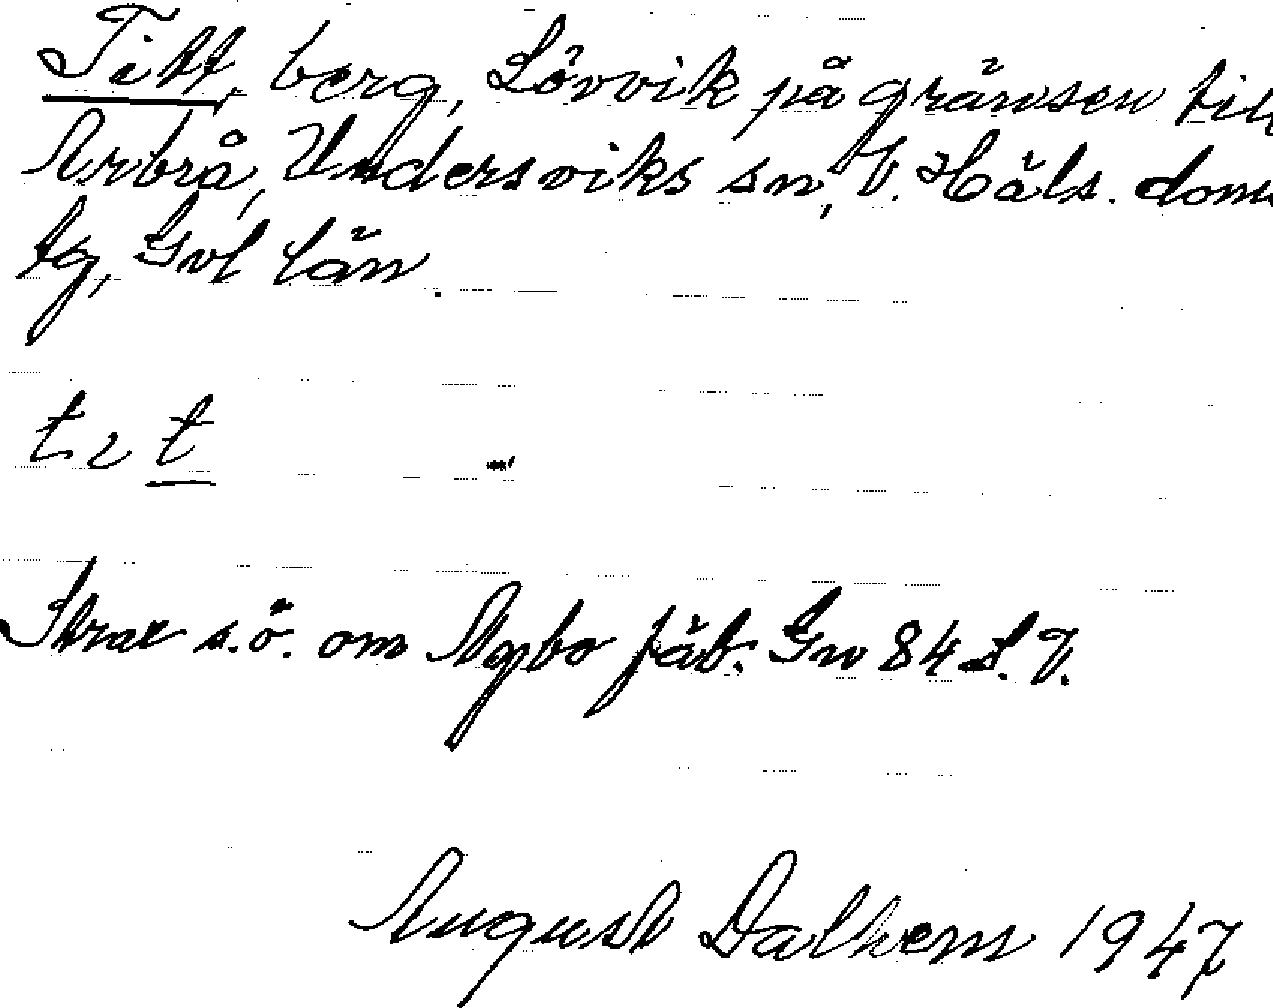 Titt, berg, Lövvik på gränsen till
Arbrå, Undersviks sn, V. Häls. doms
tg, Gvl län.
tıt
Strax s.ö. om Nybo fäb. Gv 84 S.V.
August Dalhem 1947